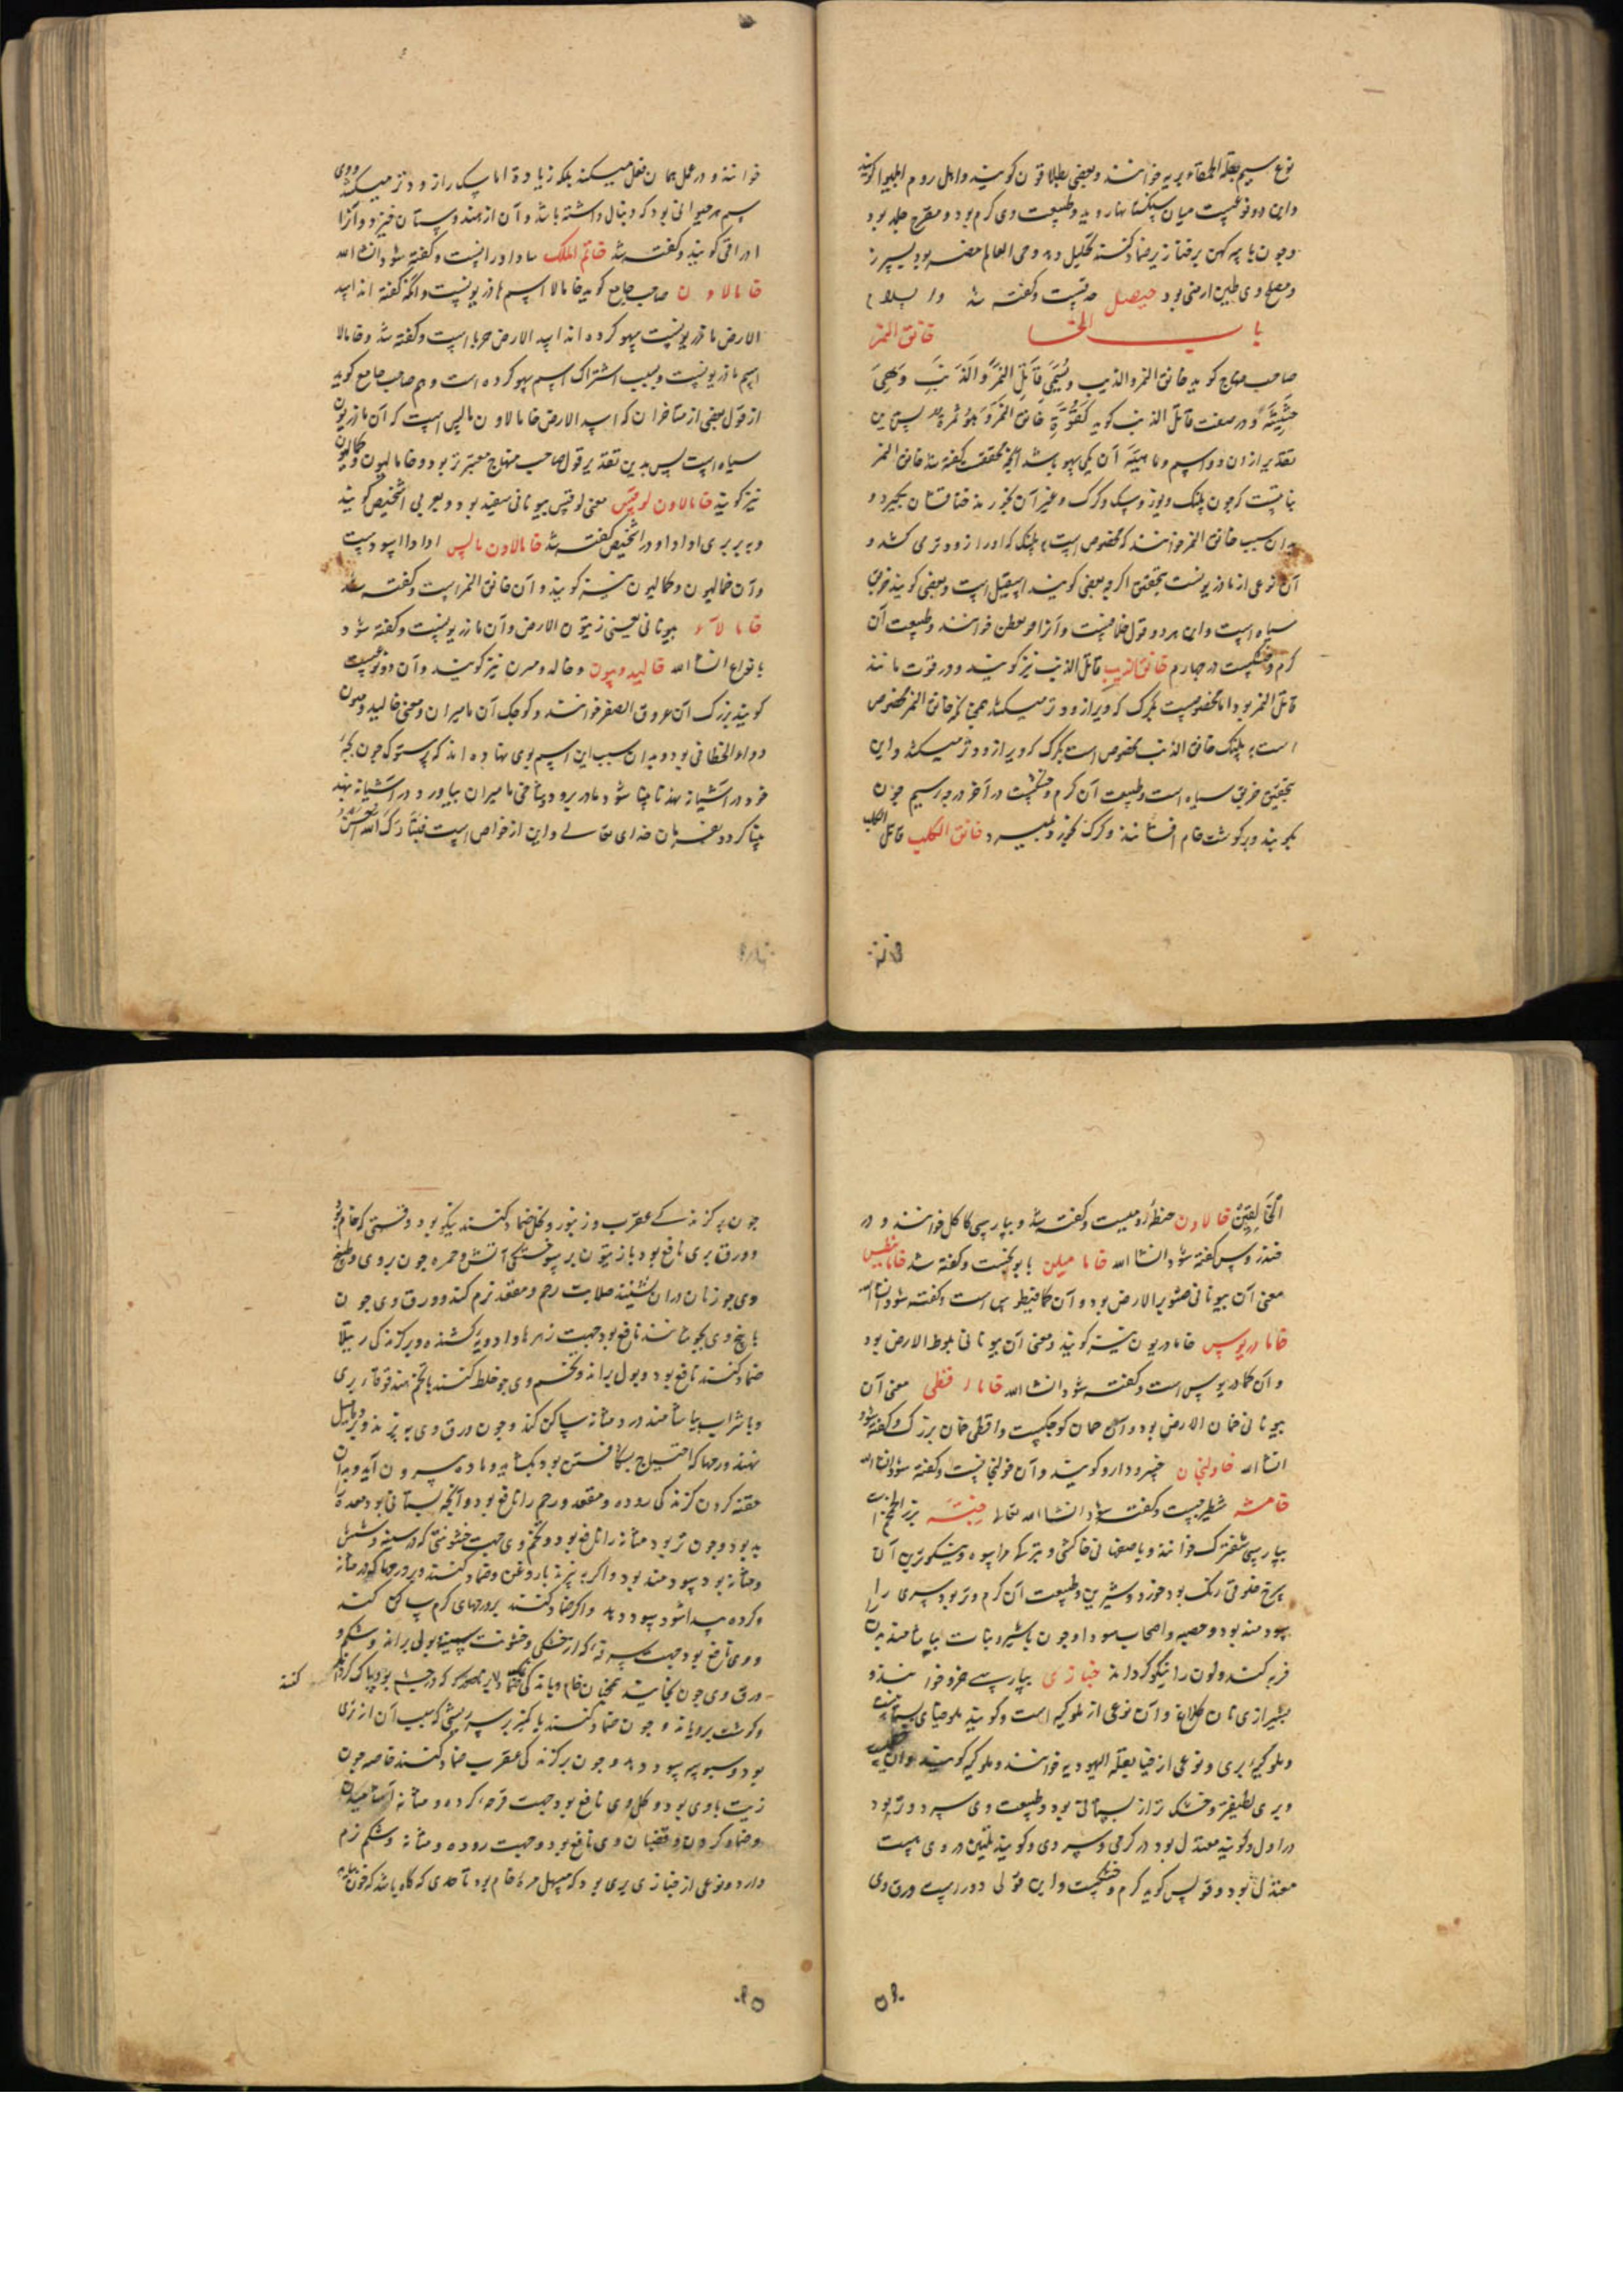 نوع سیم بقلة الحمقاء بریه خوانند و بعضی طلاقون کویند و اهل روم
واین دو نوعیست میان سنکستانها روید و طبیعت وی کرم بود و مقرح جلد بود
وجون با پیه کهن بر خنازیر ضماد کنند تحلیل دهد و حی العالم مضر بود بسپرز
ومصلح وی طین ارمنی بود حیصل حدقیست وکفته شد والسلام
باب الخا خانق النمر
صاحب منهاج کوید خانق النمر والذیب ویسمی قاتل النمر والذئب وهی
حشیشة ودر صفت قاتل الذئب کوید کقوة خانق النمر وهو ثمرة پس بدین
تقدیر از ان دو اسم وماهیة آن یکی سهو باشد آنچه محققست کفته شد خانق النمر
نباتیست که جون پلنک ویوز وسک وکرک وغیر آن بخورند خناقشان بکیرد و
بدان سبب خانق النمر خوانند که مخصوص است به پلنک که اورا زودتر می کشد و
آن نوعی از مازریونست بتحقیق اکرچه بعضی کویند اسقیل است وبعضی کویند خربق
سیاه است واین هر دو قول خلافست وآنرا خوانند وطبیعت آن
کرم وخشکست در جهارم خانق الذیب قاتل الذئب نیز کویند ودر قوت مانند
قاتل النمر بود اما مخصوصست بکرک که ویرا زودتر میکشد همجنانکه خانق النمر مخصوص
است به پلنک خانق الذئب مخصوص است بکرک که ویرا زودتر میکشد واین
بتحقیق خربق سیاه است وطبیعت آن کرم وخشکست در آخر درجه سیم جون
بکوبند وبر کوشت خام افشانند وکرک بخورد بمیرد خانق الکلب قاتل الکلب
خوانند و در عمل همان فعل میکند بلکه زیاده اما سک را زودتر میکشد ووی
سم هر حیوانی بود که دنبال داشته باشد و آن از هندوستان خیزد وآنرا
اداراقی کویند وکفته شد خاتم الملک وکفته شود انشاالله
خامالاون صاحب جامع کوید خامالا اسم مازریونست وانکه کفته اند اسد
الارض مازریونست سهو کرده اند اسد الارض حربا است وکفته شد وخامالا
اسم مازریونست وبسبب اشتراک اسم سهو کرده است وهم صاحب جامع کوید
از قول بعضی از متاخران که اسد الارض خامالاون مالس است که آن مازریون
سیاه است پس بدین تقدیر قول صاحب منهاج معتبرتر بود وخامالیون وکمالیون
نیز کویند خامالاون لوقس معنی لوقس بیونانی سفید بود وبعربی اشخیص کویند
وبه بربری اداد ودر اشخیص کفته شد خامالاون مالس اداد اسودست
وآن خمالیون وکمالیون نیز کویند وآن خانق النمر است وکفته شد
خامالاء بیونانی یعنی زیتون الارض وآن مازریونست وکفته شود
بانواع انشاالله خالیدونیون وخالدومرن نیز کویند وآن دو نوعیست
کویند بزرک آن عروق الصفر خوانند وکوجک آن مامیران ومعنی خالیدومیون
دواء الخطافی بود وبدان سبب این اسم بوی نهاده اند که پرستوک جون بچه
خود در آشیانه نهد نابینا شود مادر برود وشاخی مامیران بیاورد ودر آشیانه نهد
بینا کردد بفرمان خدای تعالی واین از خواص است فتبارک الله احسن
الخالقین خالاون حنظه رومیست وکفته شد وبپارسی کاکل خوانند ودر
خندروس کفته شود انشاالله خاما میلن بابونجست وکفته شد خامانیطس
معنی آن بیونانی صنوبر الارض بود وآن کمافیطوس است وکفته شود انشاالله
خامادریوس خامادریون نیز کویند ومعنی آن بیونانی بلوط الارض بود
وآن کمادریوس است وکفته شود انشاالله خاما اقطی معنی آن
بیونانی خمان الارض بود واین خمان کوجکست واقطی خمان بزرک وکفته شود
انشاالله خاولنجان خسرودارو کویند وآن خولنجانست وکفته شود انشاالله
خامشه شیطرجست وکفته شود انشاالله تعالی خبه بزر الخمخم است
بپارسی شفترک خوانند وباصفهانی خاکشی وبترکی وبنیکوترین آن
سرخ خلوقی رنک بود خورد وشیرین وطبیعت آن کرم وتر بود سری را
سودمند بود وحصبه واصحاب سودا وجون با شیر ونبات بیاشامند بدن
فربه کند ولون را نیکو کرداند خبازی بپارسی خرو خوانند و
بشیرازی نان کلاغ وآن نوعی از ملوکیه است وکویند ملوخیای بستانیست
وملوکیه بری ونوعی از خبازی بقلة الیهودیه خوانند وملوکیه کویند
وبری لطیفتر وخشک تر از بستانی بود وطبیعت وی سرد وتر بود
در اول وکویند معتدل بود در کرمی وسردی وکویند تلیین در وی هست
معتدل بود ودوقولس کوید کرم وخشکست واین قولی دورست ورق وی
جون بر کزندکی عقرب وزنبور ونحل ضماد کنند نیکو بود وقتی که خام بود
وورق بری نافع بود با زیتون بر سوختکی آتش وحمره جون بروی وطبیخ
وی جو زنان دران نشینند صلابت رحم ومقعد نرم کند وورق وی جون
با بیخ وی بجوشانند نافع بود جهت زهرها وادویه کشنده وبر کزندکی رتیلا
ضماد کنند نافع بود وبول براند وتخم وی جو خلط کنند با تخم حندقوقاء بری
وبا شراب بیاشامند درد مثانه ساکن کند وجون ورق وی بپزند وبر دمامیل
نهند ورمها که احتیاج بشکافتن بود بکشاید وماده بیرون آید وبدان
حقنه کردن کزندکی روده ومقعد ورحم را نافع بود وآنچه بستانی بود معده را
بد بود وجون تر بود مثانه را نافع بود وتخم وی جهت خشونتی که در سینه وشش
ومثانه بود سودمند بود واکر بپزند با روغن وضماد کنند بر ورمها که در مثانه
وکرده پیدا شود سود دهد واکر ضماد کنند بر ورمهای کرم ساکن کند
ووی نافع بود جهت سرفه که از خشکی وخشونت سینه بول براند وشکم و
ورق وی جون بخایند همجنان خام کنند
وکوشت برویاند وجون ضماد کنند با کمیز بر سر ریشی که سبب آن از تری
بود وسبوسه سود دهد وجون بر کزندکی عقرب ضماد کنند خاصه جون
زیت باوی بود وکل وی نافع بود جهت قرحه کرده ومثانه آشامیدن
وضماد کردن وقضبان وی نافع بود وجهت روده ومثانه وشکم نرم
دارد ونوعی از خبازی بری بود که مسهل مره خام بود تا حدی که کاه باشد که خون بیارد